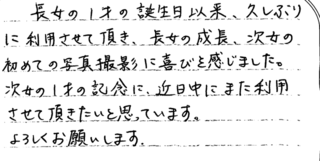 長女の1才の誕生日以来、久しぶり
に利用させて頂き、長女の成長、次女の
初めての写真撮影に喜びを感じました。
次女の1才の記念に、近日中にまた利用
させて頂きたいと思っています。
よろしくお願いします。